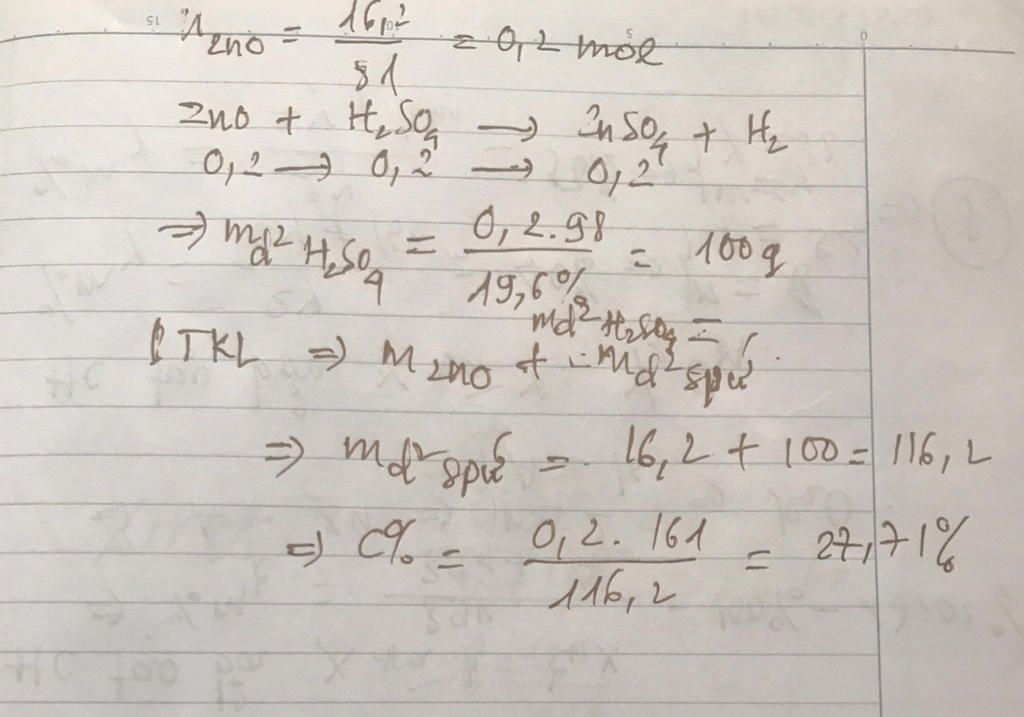 n ZnO = 16,2 / 81 = 0,2 mol
ZnO + H2SO4 → ZnSO4 + H2
0,2 → 0,2 → 0,2
⇒ m d² H2SO4 = 0,2.98 / 19,6% = 100g
m d² H2SO4 =
BTKL ⇒ m ZnO + = m d² spứ
⇒ m d² spứ = 16,2 + 100 = 116,2
⇒ C% = 0,2.161 / 116,2 = 27,71%